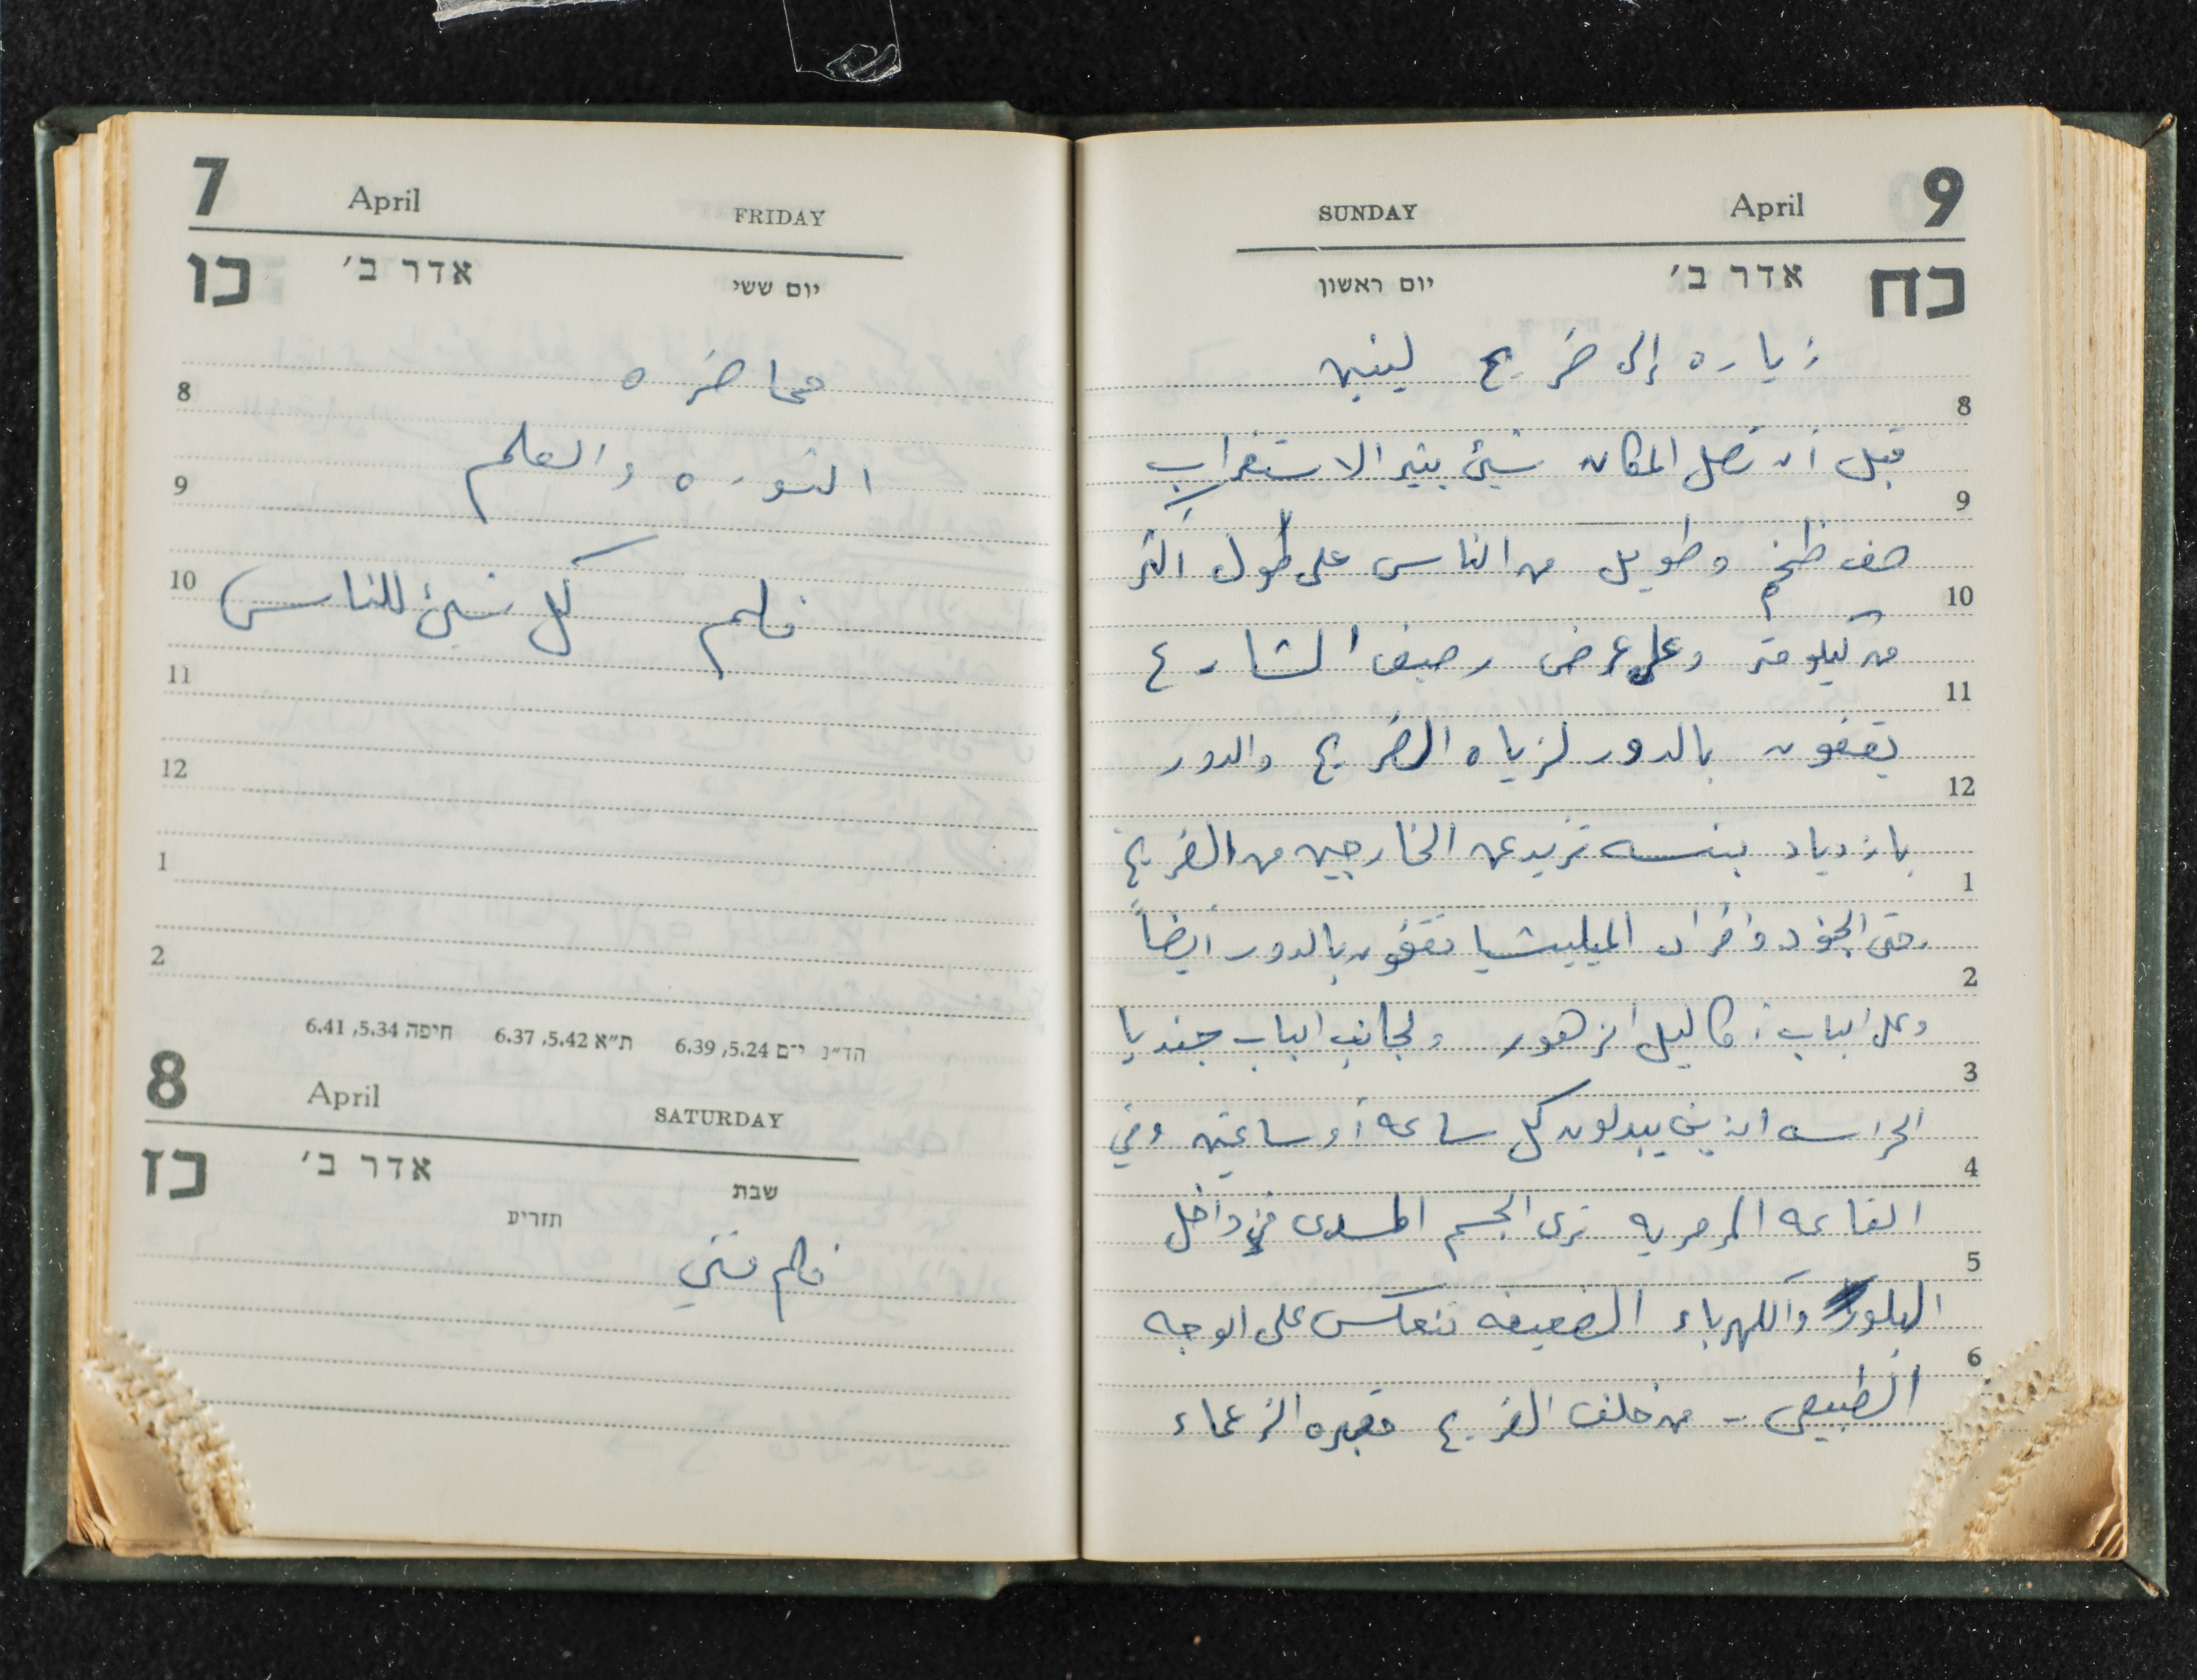 7 April FRIDAY
כו אדר ב׳ יום ששי
محاضره
8
الثوره والعلم
9
فلم كل شيئ للناس
10
11
12
1
2
הד״נ י־ם 5.24, 6.39 ת״א 5.42, 6.37 חיפה 5.34, 6.41
8 April SATURDAY
כז אדר ב׳ שבת
תזריע
فلم فني
SUNDAY April 9
כח אדר ב׳ יום ראשון
زياره إلى ضريح لينين
8
قبل أن نصل المكان شيئ يثير الاستغراب
9
صف ظخم وطويل من الناس على طول اكثر
10
من كيلو متر وعلى عرض رصيف الشارع
11
يقفون بالدور لزياه الضريح والدور
12
بازدياد بنسه تزيد عن الخارجين من الضريح
1
حتى الجنود وافراد الميليشيا تقفون بالدور ايضاً
2
وعلى الباب أكاليل الزهور ولجانب الباب جنديا
3
الحراسه الذين يبدلون كل ساعه أو ساعتين وفي
4
القاعه المرمريه ترى الجسم المسدى في داخل
5
البلور والكهرباء الضعيفه تنعكس على الوجه
6
الطبيعي - من خلف الضريح مقبره الزعماء